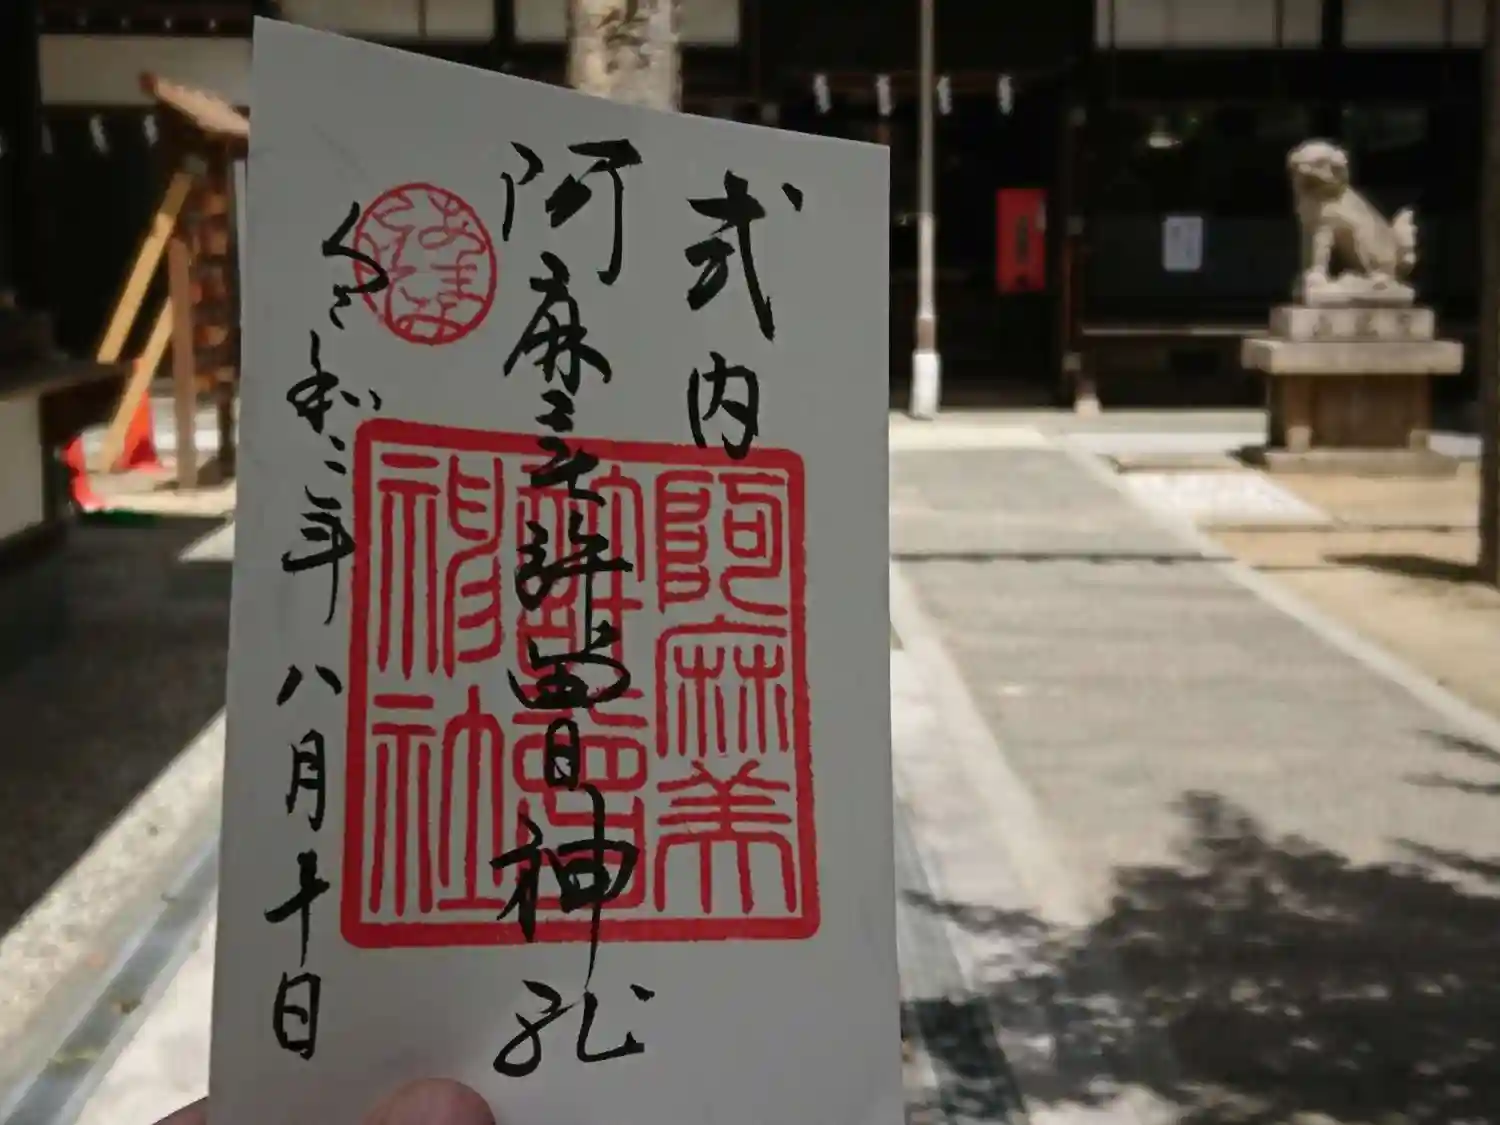 式内
阿麻美許曽神社
令和二年八月十日
阿麻美
許曾
神社